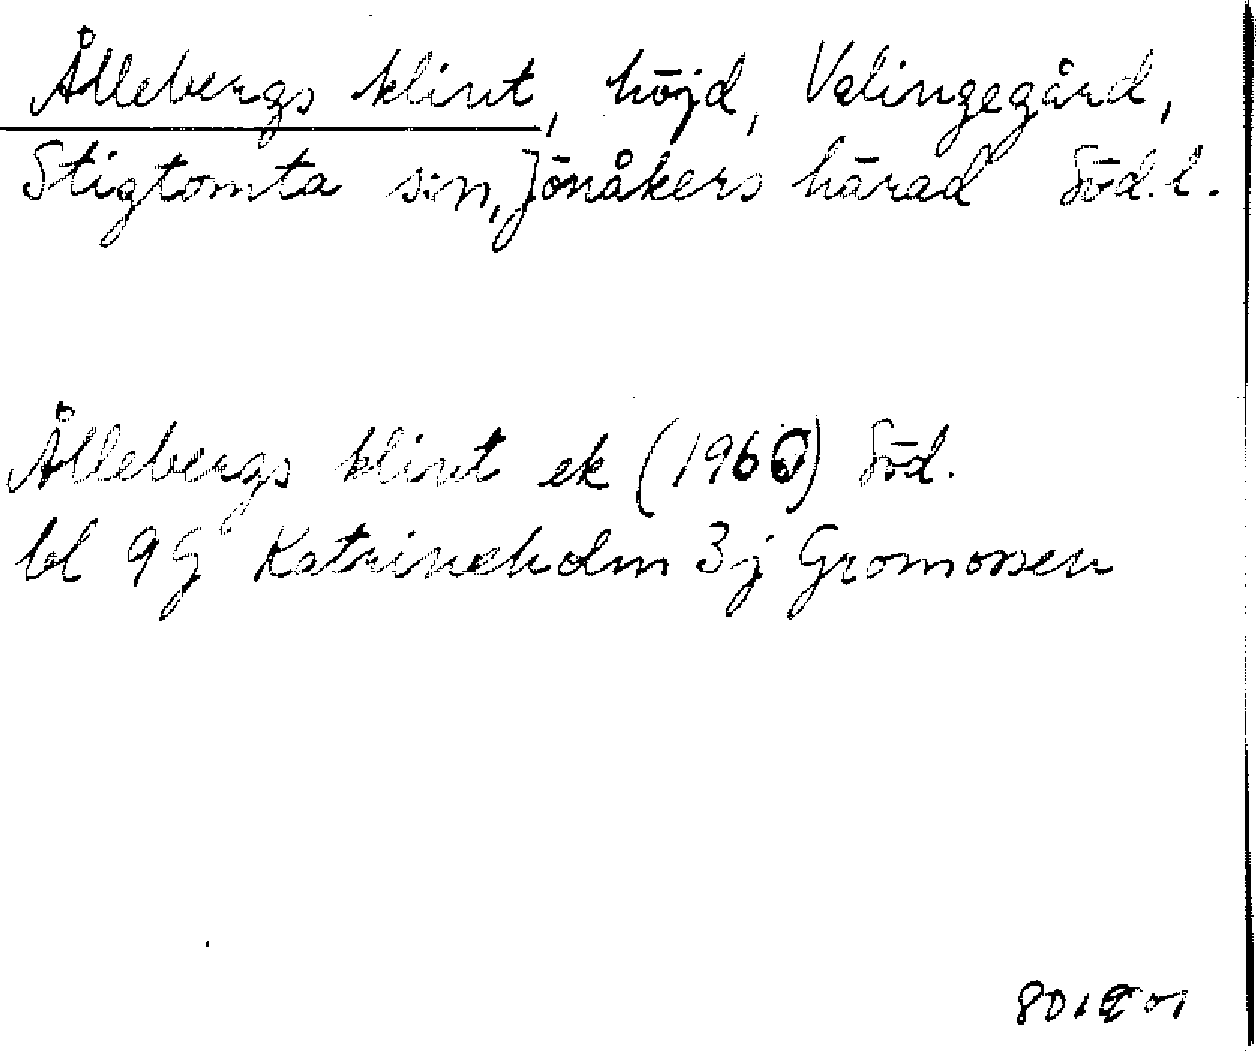 Ållebergs klint, höjd, Valingegård,
Stigtomta s:n, Jönåkers härad Söd.l.
Ållebergs klint ek (1960) Söd.
bl 9G Katrineholm 3j Gromossen